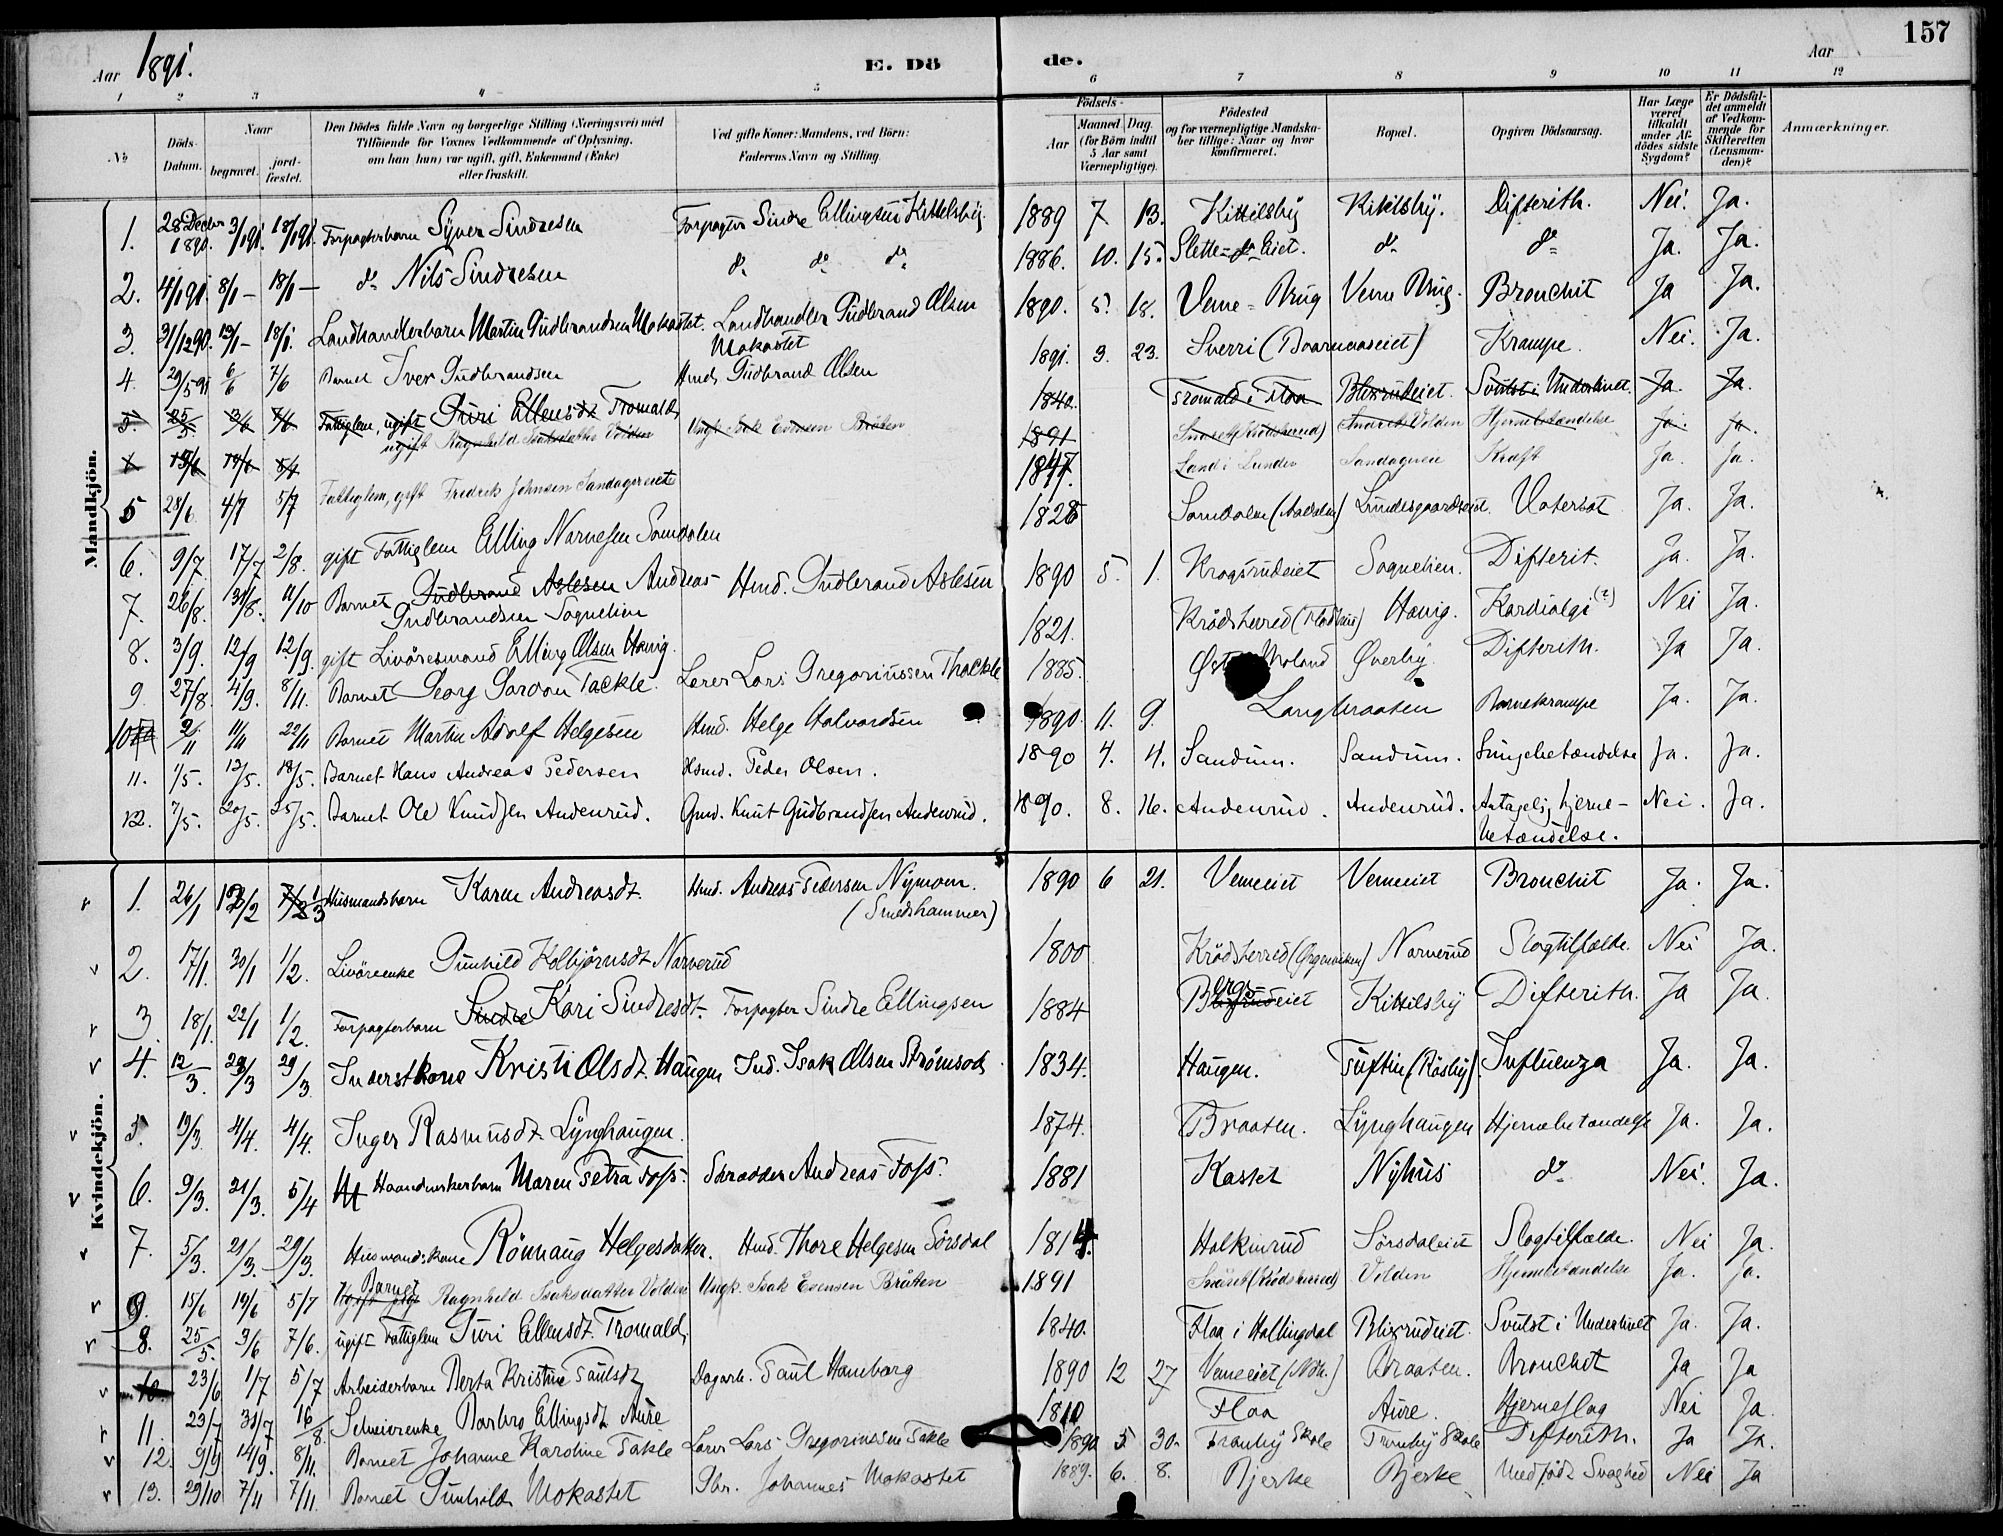 Aar 1891. E. Dö de. Aar 157
1 2 3 4 5 6 7 8 9 10 11 12
No Döds-Datum. Naar begravet. jord-fæstet. Den Dödes fulde Navn og borgerlige Stilling (Næringsvei) med Tilföiende for Voxnes Vedkommende af Oplysning, om han (hun) var ugift, gift, Enkemand (Enke) eller fraskilt. Ved gifte Koner: Mandens, ved Börn: Faderens Navn og Stilling. Födsels- Aar Maaned Dag. (for Börn indtil 5 Aar samt Værnepligtige). Födested og for værnepligtige Mandskaber tillige: Naar og hvor konfirmeret. Bopæl. Opgiven Dödsaarsag. Har Læge været tilkaldt under Afdödes sidste Sygdom? Er Dödsfaldet anmeldt af Vedkommende for Skifteretten (Lensmanden)? Anmærkninger.
Mandkjön.
1. 28 Decbr 1890. 3/1 91. 18/1 91. Forpagterbarn Syver Sindresen Forpagter Sindre Ellingsen Kittelsby. 1889 7 13. Kittilsby Kittilsby. Difterith. Nei. Ja.
2. 4/1 91. 8/1 – 18/1 – do Nils Sindresen do do do 1886. 10. 15. Slette-Eiet. do do Ja. Ja.
3. 31/12 90. 12/1 – 18/1. Landhandlerbarn Martin Gudbrandsen Mokastet. Landhandler Gudbrand Olsen Mokastet 1890. 5. 18. Veme-Brug Veme Brug. Bronchit Ja Ja.
4. 29/5 91 6/6 7/6 Barnet Iver Gudbrandsen Hmd. Gudbrand Olsen 1891. 3. 23. Sverri Krampe. Nei. Ja.
5. 25/5 3/6 7/6 Fattiglem, ugift Guri Ellensdt. Tromald 1840. Tromald i Flaa Blixrudeiet. Svulst i Underlivet. Ja. Ja.
15/6 19/6 ugift Ragnhild Isaksdatter Volden Ungk. Isak Evensen Bråten 1891 Snaret (Krödsherred) Volden Hjernebetændelse Ja. Ja.
5 28/6 4/7 5/7 Fattiglem, gift Fredrik Johnsen Sandagereiet 1847. Land i Lunder Sandageren Kræft Ja. Ja.
6. 9/7. 17/7 2/8. gift Fattiglem Elling Narnesen Somdalen 1828 Somdalen (Aadalen) Lundesgaardseiet. Vatersot Ja. Ja.
7. 26/8. 31/8. 11/10 Barnet Gudbrand Aslesen Andreas Gudbrandsen Sognelien Hmd. Gudbrand Aslesen 1890 5. 1. Krogsrudeiet Sognelien. Difterit. Ja. Ja.
8. 3/9. 12/9 12/9. gift Livöresmand Elling Olsen Hønig. 1821. Krödsherred Hønig. Kardialgi (?) Nei Ja.
9. 27/8. 4/9. 8/11. Barnet Georg Gordon Tackle. Lærer Lars Gregoriussen Thackle 1885. Moland Øverby. Difterith. Ja Ja.
10 2/11 11/11 22/11 Barnet Martin Adolf Helgesen Hmd. Helge Halvordsen 1890. 11. 9. Langbraaten Barnekrampe Ja. Ja.
11. 1/5. 12/5. 18/5. Barnet Hans Andreas Pedersen Hsmd. Peder Olsen. 1890 4. 4. Sandum. Sandum. Lungebetændelse Ja. Ja.
12. 7/5. 20/5. 25/5. Barnet Ole Knudsen Andenrud. Gmd. Knut Gudbrandsen Andenrud. 1890. 8. 16. Andenrud. Andenrud. Antagelig hjerne-betændelse. Nei. Ja.
Kvindekjön.
1. 26/1 12/2 1/3 Husmandsbarn Karen Andreasdt. Hmd. Andreas Pedersen Nymoen. (Smedshammer) 1890 6 21. Vemeeiet Vemeeiet Bronchit Ja. Ja.
2. 17/1. 30/1 1/2. Livöreenke Gunhild Kolbjørnsdt. Narverud 1800 Krödsherred Narverud Slagtilfælde. Nei Ja.
3. 18/1. 22/1 1/2. Forpagterbarn Sindre Kari Sindresdt. Forpagter Sindre Ellingsen 1884 Bergseiet Kittilsby Difterith. Ja Ja.
4. 12/3. 29/3 29/3. Inderstkone Kristi Olsdt. Haugen Ind. Isak Olsen Strømsod 1834. Haugen. Tuftin (Råsby). Influenza Ja. Ja.
5. 19/3. 4/4. 4/4. Inger Rasmusdt. Lynghaugen. 1874. Braaten. Lynghaugen Hjernebetændelse Ja. Ja.
6. 9/3. 21/3. 5/4 Haandverkerbarn Maren Petra Foss. Skrædder Andreas Foss. 1881 Kastet Nyhus do Nei. Ja.
7. 5/3. 21/3. 29/3. Husmandskone Rönnaug Helgesdatter. Hmd. Thore Helgesen Sörsdal 1814. Halkinrud Sörsdaleiet Slagtilfælde. Nei Ja.
9. 15/6 19/6 5/7 Barnet Ragnhild Isaksdatter Volden Ungk. Isak Evensen Bråten 1891 Snaret (Krödsherred) Volden Hjernebetændelse Ja. Ja.
8. 25/5. 3/6 7/6. ugift Fattiglem Guri Ellensdt. Tromald. 1840. Flaa i Hallingdal Blixrudeiet. Svulst i Underlivet Ja. Ja.
10. 23/6 1/7 5/7 Arbeiderbarn Berta Kristine Paulsdt. Dagarb. Paul Hamborg 1890 12 27 Vemeeiet Braaten. Bronchit Ja Ja
11. 23/7 31/7 16/8. Seleierenke Barbro Ellingsdt. Aure 1810 Flaa Aure. Hjerneslag Nei Ja.
12. 9/9 14/9. 8/11. Barnet Johanne Karoline Takle Lærer Lars Gregoriussen Takle 1890 5. 30. Tranby Skole Tranby Skole Difterith. Ja Ja.
13. 29/10 7/11 7/11. Barnet Gunhild Mokastet Gbr. Johannes Mokastet 1889. 6. 8. Bjerke Bjerke Medfødt Svaghed Nei Ja